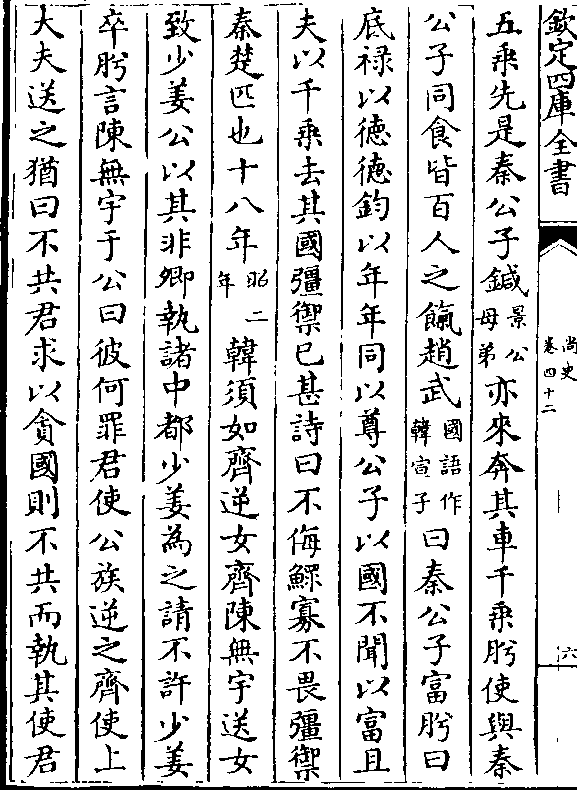 欽定四庫全書
尚史
卷四十二
六
五乘先是秦公子鍼景公母弟亦來奔其車千乘肸使與秦
公子同食皆百人之餼趙武國語作韓宣子曰秦公子富肸曰
底禄以徳徳鈞以年年同以尊公子以國不聞以富且
夫以千乘去其國彊禦已甚詩曰不侮鰥寡不畏彊禦
秦楚匹也十八年昭二年韓須如齊逆女齊陳無宇送女
致少姜公以其非卿執諸中都少姜為之請不許少姜
卒肸言陳無宇于公曰彼何罪君使公族逆之齊使上
大夫送之猶曰不共君求以貪國則不共而執其使君